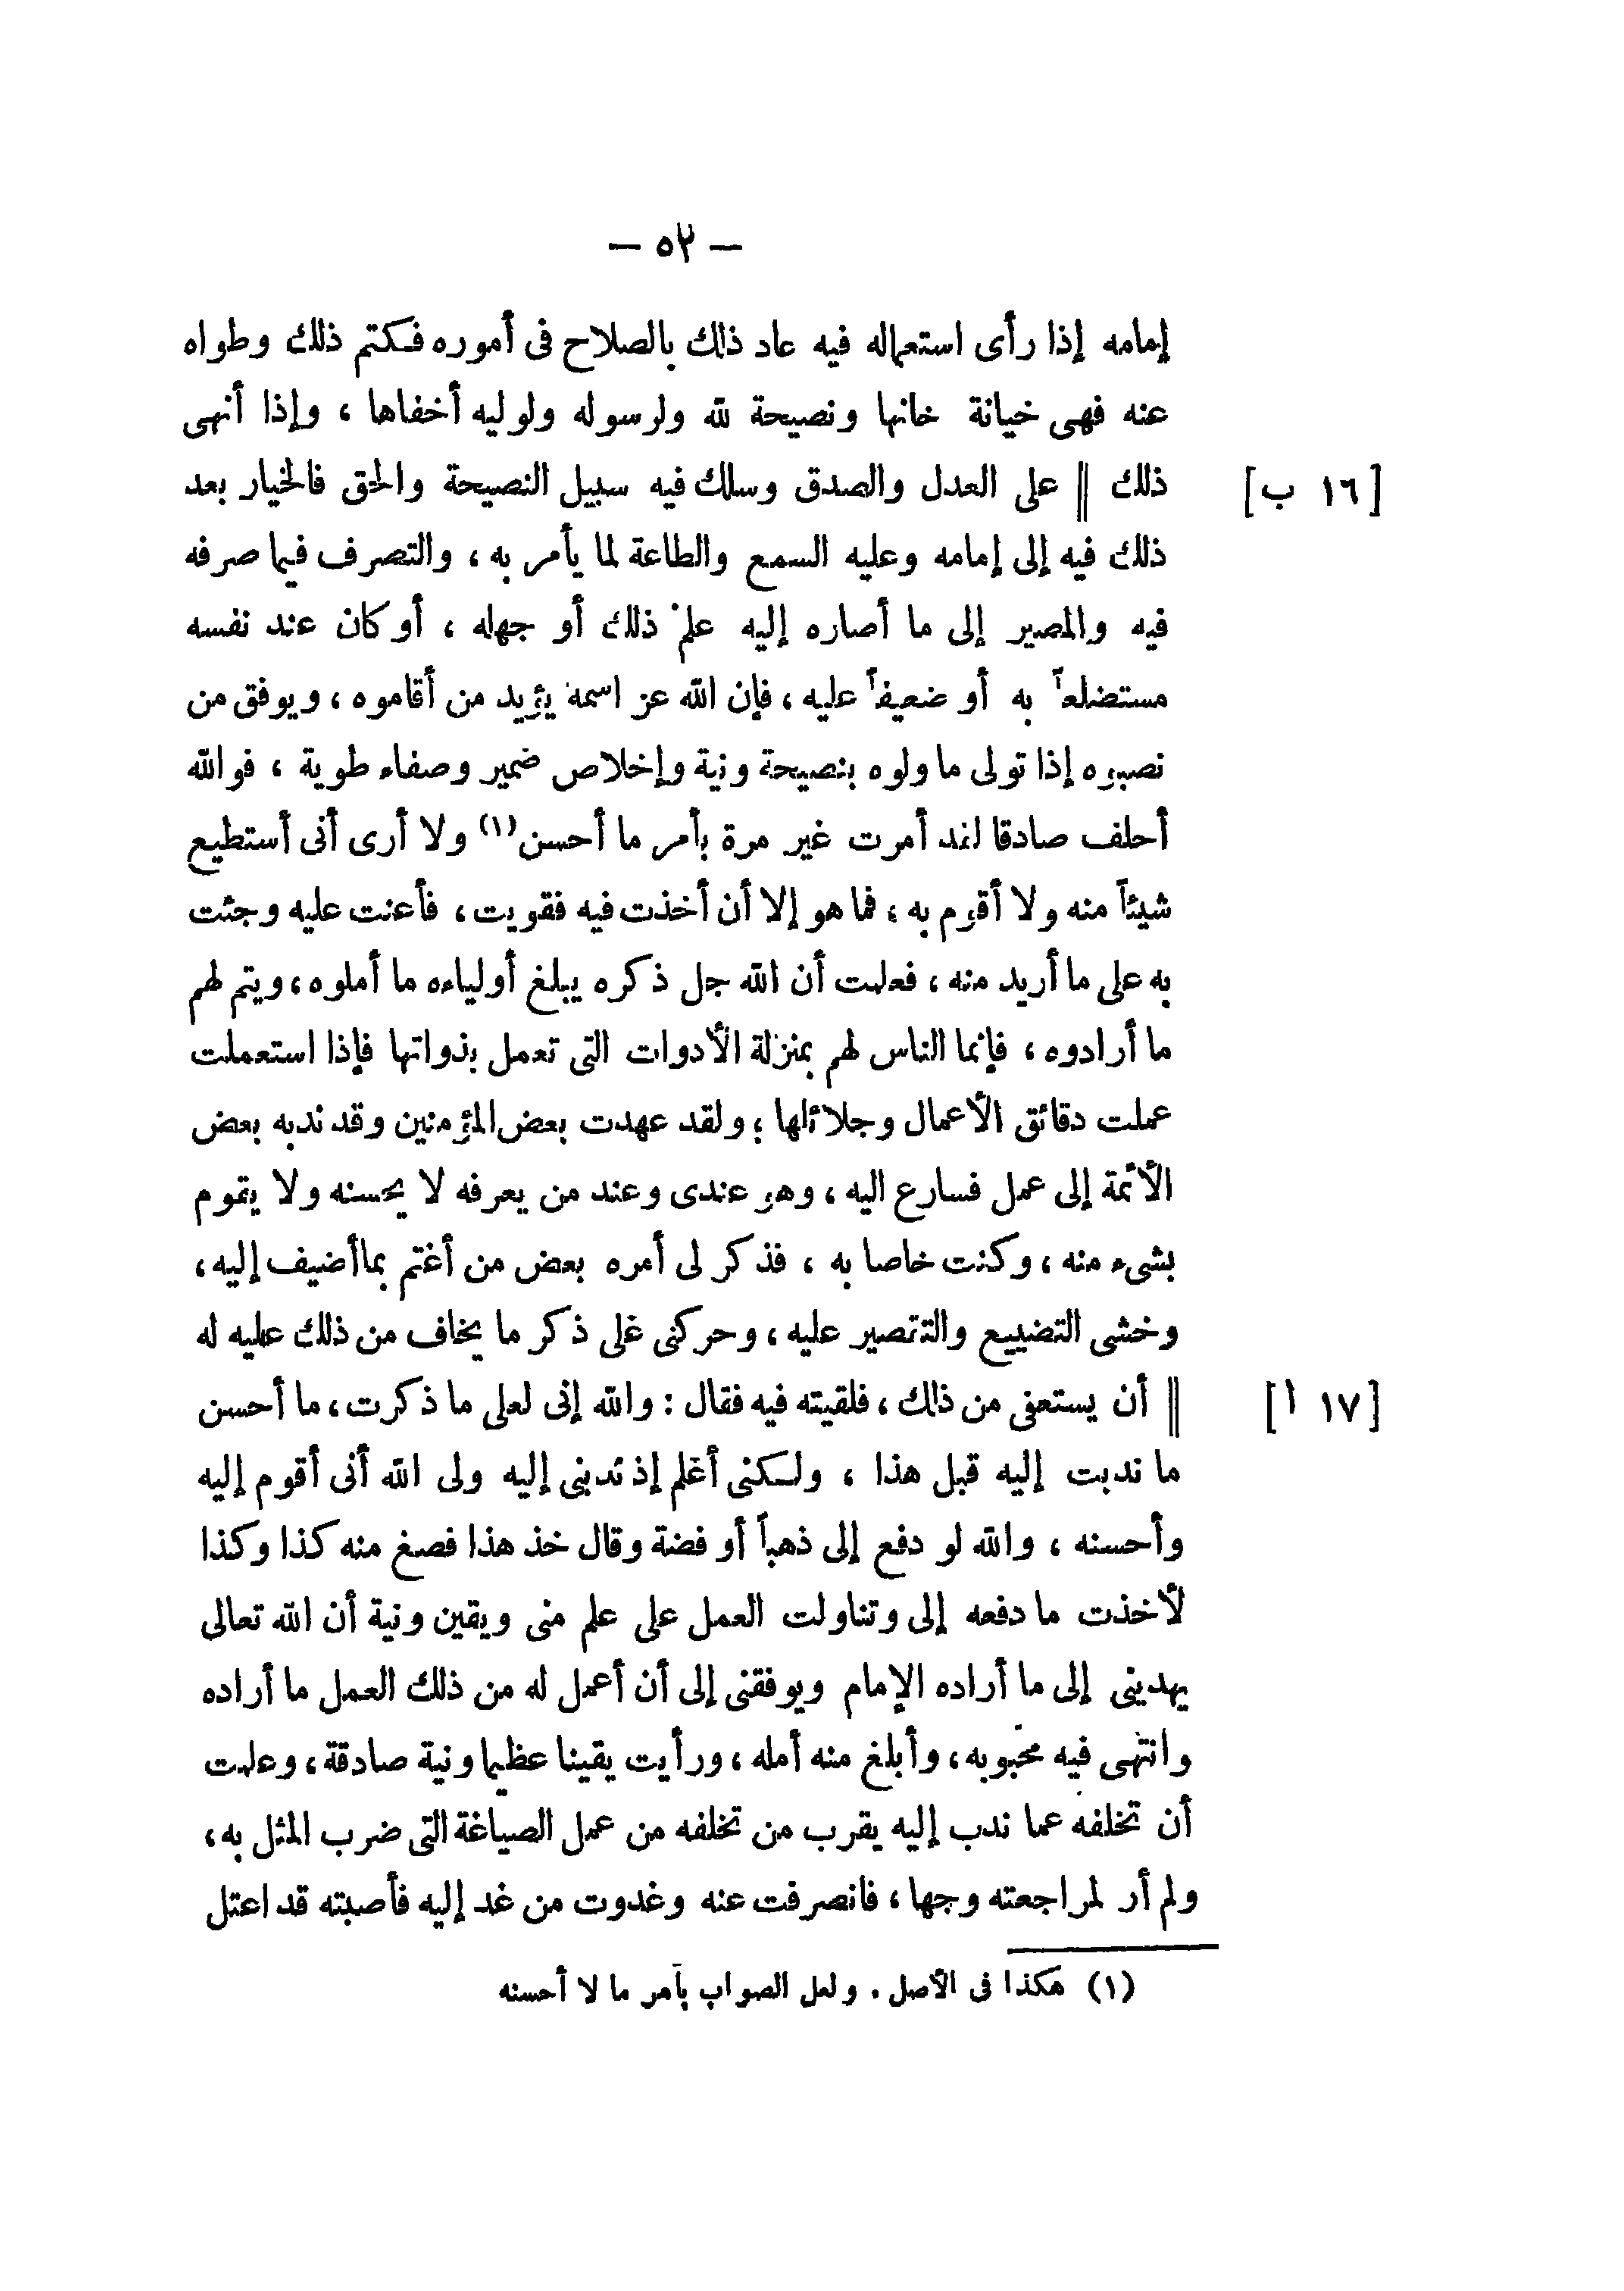 — ٥٢ —
إمامه إذا رأى استعماله فيه عاد ذلك بالصلاح فى أموره فكتم ذلك وطواه
عنه فهى خيانة خانها ونصيحة لله ولرسوله ولوليه أخفاها ، وإذا أنهى
[١٦ ب] ذلك || على العدل والصدق وسلك فيه سبيل النصيحة والحق فالخيار بعد
ذلك فيه إلى إمامه وعليه السمع والطاعة لما يأمر به ، والتصرف فيما صرفه
فيه والمصير إلى ما أصاره إليه علم ذلك أو جهله ، أو كان عند نفسه
مستضلعاً به أو ضعيفاً عليه ، فإن الله عز اسمه يؤيد من أقاموه ، ويوفق من
نصبوه إذا تولى ما ولوه بنصيحة ونية وإخلاص ضمير وصفاء طوية ، فوالله
أحلف صادقا لقد أمرت غير مرة بأمر ما أحسن(١) ولا أرى أنى أستطيع
شيئاً منه ولا أقوم به ، فما هو إلا أن أخذت فيه فقويت ، فأعنت عليه وجئت
به على ما أريد منه ، فعلمت أن الله جل ذكره يبلغ أولياءه ما أملوه ، ويتم لهم
ما أرادوه ، فإنما الناس لهم بمنزلة الأدوات التى تعمل بذواتها فإذا استعملت
عملت دقائق الأعمال وجلائلها ؛ ولقد عهدت بعض المؤمنين وقد ندبه بعض
الأئمة إلى عمل فسارع اليه ، وهو عندى وعند من يعرفه لا يحسنه ولا يقوم
بشىء منه ، وكنت خاصا به ، فذكر لى أمره بعض من أغتم بما أضيف إليه ،
وخشى التضييع والتقصير عليه ، وحركنى على ذكر ما يخاف من ذلك عليه له
[١٧ ا] || أن يستعفى من ذلك ، فلقيته فيه فقال : والله إنى لعلى ما ذكرت ، ما أحسن
ما ندبت إليه قبل هذا ، ولكنى أعلم إذ ندبنى إليه ولى الله أنى أقوم إليه
وأحسنه ، والله لو دفع إلى ذهباً أو فضة وقال خذ هذا فصغ منه كذا وكذا
لأخذت ما دفعه إلى وتناولت العمل على علم منى ويقين ونية أن الله تعالى
يهدينى إلى ما أراده الإمام ويوفقنى إلى أن أعمل له من ذلك العمل ما أراده
وانتهى فيه محبوبه ، وأبلغ منه أمله ، ورأيت يقينا عظيما ونية صادقة ، وعلمت
أن تخلفه عما ندب إليه يقرب من تخلفه من عمل الصياغة التى ضرب المثل به ،
ولم أر لمراجعته وجها ، فانصرفت عنه وغدوت من غد إليه فأصبته قد اعتل
(١) هكذا فى الأصل . ولعل الصواب بأمر ما لا أحسنه